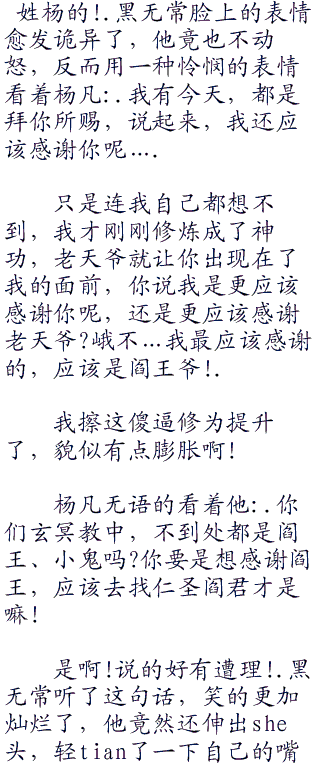 姓杨的!.黑无常脸上的表情
愈发诡异了，他竟也不动
怒，反而用一种怜悯的表情
看着杨凡:.我有今天，都是
拜你所赐，说起来，我还应
该感谢你呢….
只是连我自己都想不
到，我才刚刚修炼成了神
功，老天爷就让你出现在了
我的面前，你说我是更应该
感谢你呢，还是更应该感谢
老天爷?峨不…我最应该感谢
的，应该是阎王爷!.
我擦这傻逼修为提升
了，貌似有点膨胀啊!
杨凡无语的看着他:.你
们玄冥教中，不到处都是阎
王、小鬼吗?你要是想感谢阎
王，应该去找仁圣阎君才是
嘛!
是啊!说的好有遭理!.黑
无常听了这句话，笑的更加
灿烂了，他竟然还伸出she
头，轻tian了一下自己的嘴